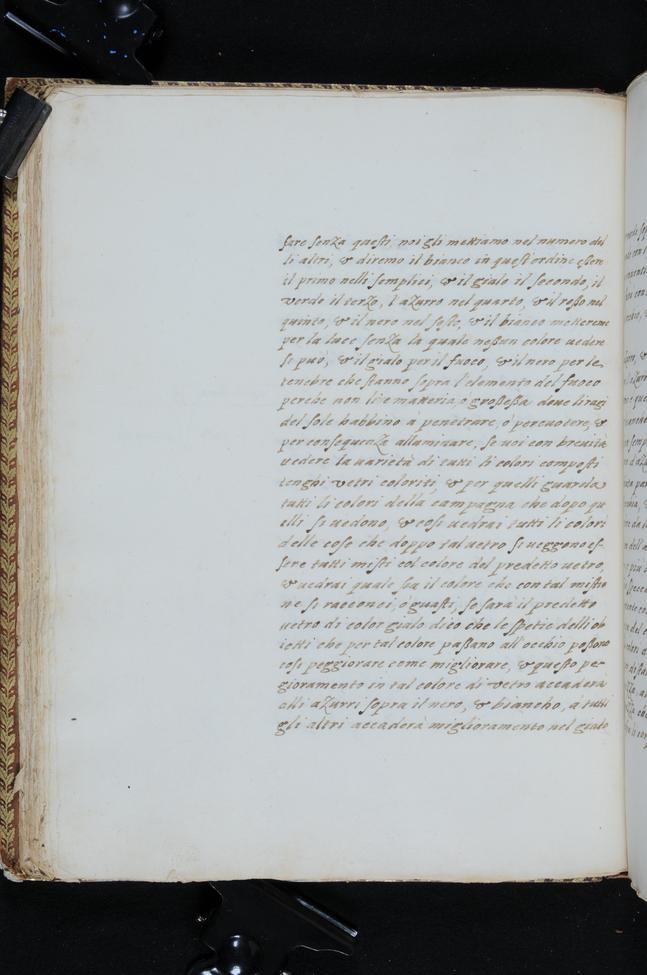 sare senza questi noi gli mettiamo nel numero del
li altri, & diremo il bianco in quest'ordine esser
il primo nelli semplici, & il gialo il secondo, il
verde il terzo, l'azurro nel quarto, & il rosso nel
quinto, & il nero nel sesto, & il bianco metterem
per la luce senza la quale nessun colore uedere
si può, & il gialo per il fuoco, & il nero per le
tenebre che stanno sopra l'elemento del fuoco
perche non li è matteria o grossessa doue li ragi
del sole habbino à penetrare, ò percuotere, &
per consequenza alluminare, se uoi con breuità
uedere la uarietà di tutti li colori composti
tenghi vetri coloriti, & per quelli guarda
tutti li colori della campagna che dopo qu
elli si uedono, & cosi uedrai tutti li colori
delle cose che doppo tal uetro si ueggono es-
sere tutti misti col colore del predetto uetro,
& uedrai quale sia il colore che con tal mistio
ne si racconci, o guasti, se sarà il predetto
uetro di color gialo dico che le spetie delli ob
ietti che per tal colore passano all'occhio possono
cosi peggiorare come migliorare, & questo pe-
gioramento in tal colore di vetro accaderà
alli azurri sopra il nero, & biancho, a tutti
gli altri accaderà miglioramento nel gialo